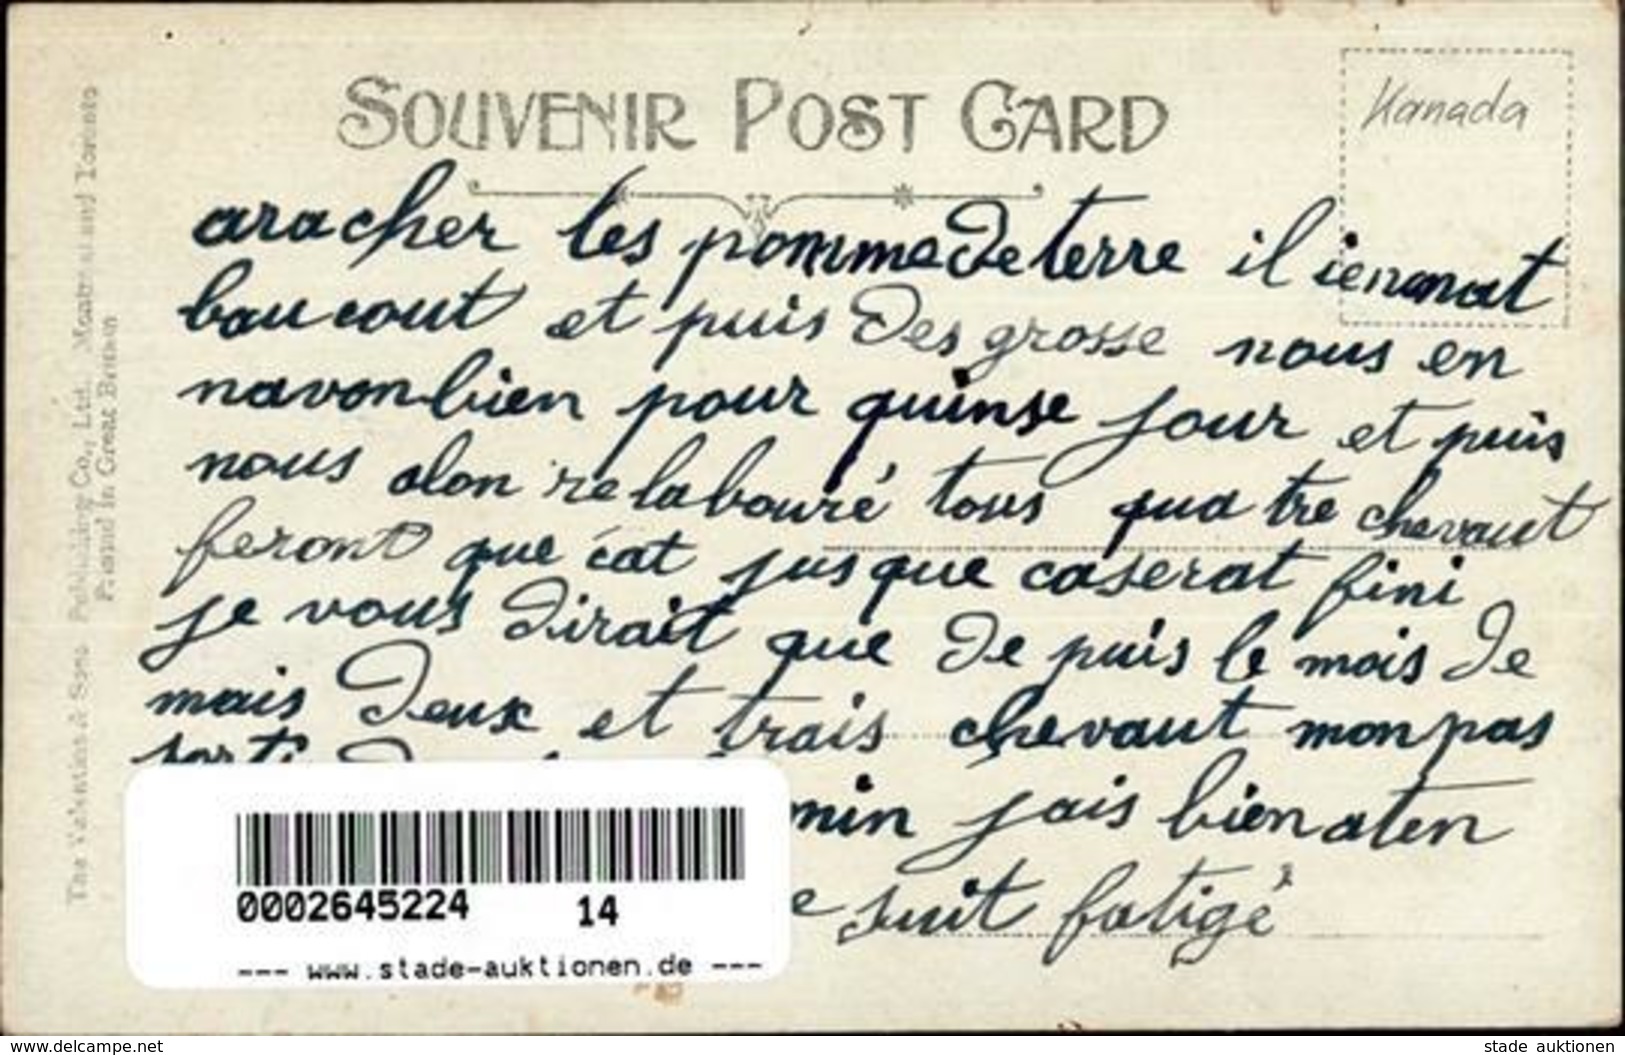 SOUVENIR POST CARD
Kanada
aracher les pomme de terre il ienonat
baucout et puis des grosse nous en
navon bien pour quinse jour et puis
nous alon relabouré tous quatre chevaut
feront que cat jusque caserat fini
je vous dirait que de puis le mois de
mais deux et trais chevaut mon pas
sorti
min jais bien aten
e suit fatigé
The Valentine & Sons Publishing Co., Ltd. Montreal and Toronto
Printed in Great Britain
0002645224 14
--- www.stade-auktionen.de ---
www.delcampe.net
stade auktionen